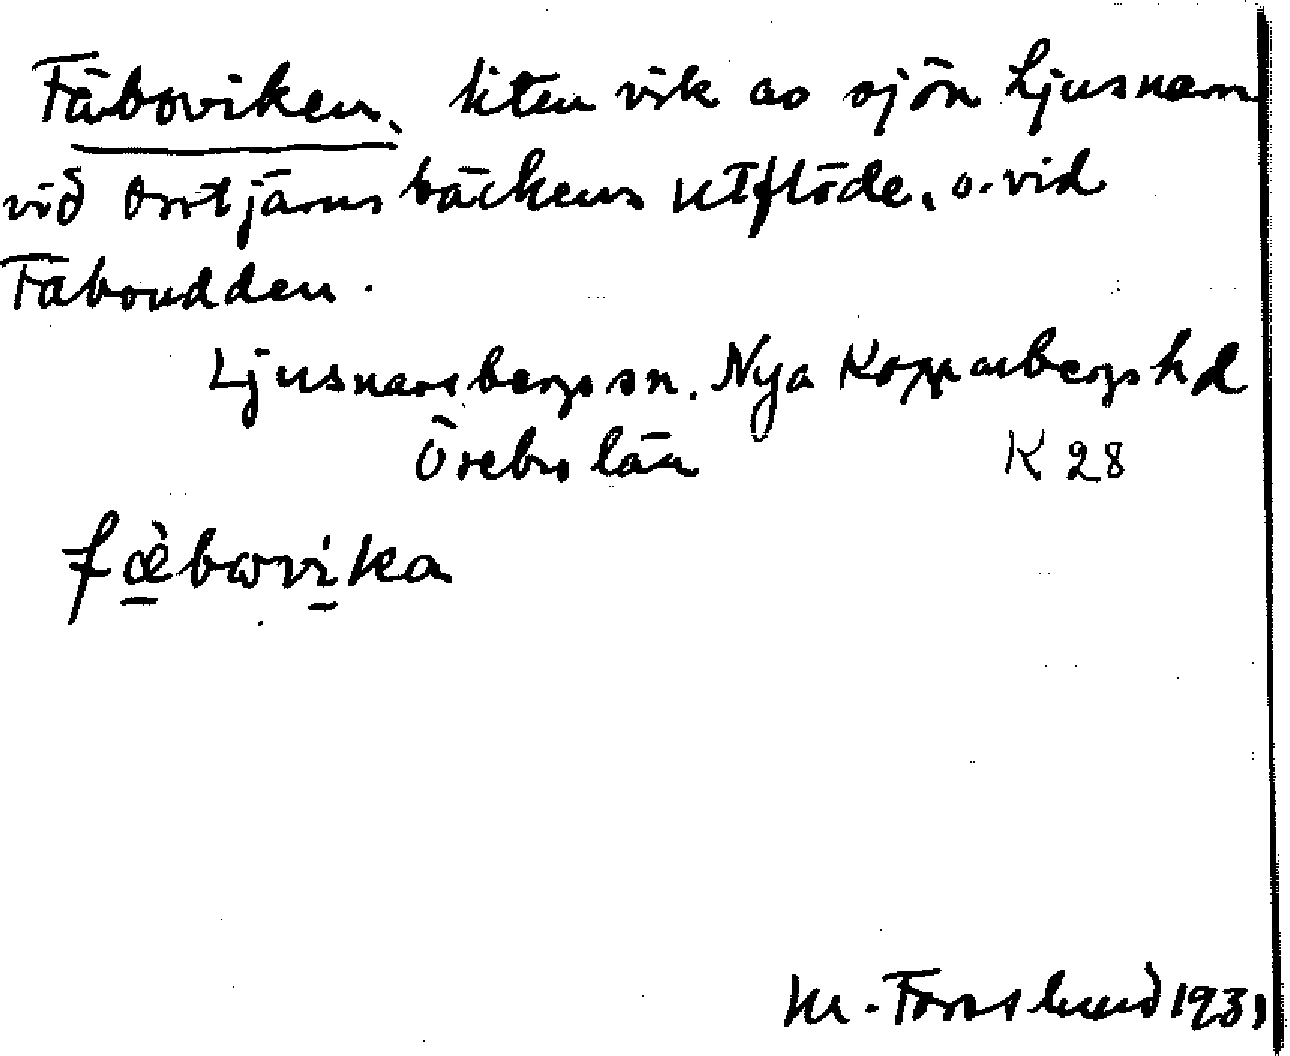 Fäboviken, liten vik av sjön Ljusnaren
vid Orrtjärnsbäckens utflöde, o. vid
Fäboudden.
Ljusnarsbergs sn. Nya Kopparbergs hd
Örebro län K 28
fæ̀bωvika
M. Forslund 1931